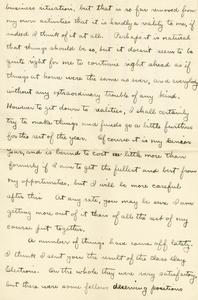 business situation, but that is so far removed from
my own activities that it is hardly a reality to me, if
indeed I think of it at all. Perhaps it is natural
that things should be so, but it doesn't seem to be
quite right for me to continue right ahead as if
things at home were the same as ever, and everybody
without any extraordinary trouble of any kind.
However to get down to realities, I shall certainly
try to make things and funds go a little further
for the rest of the year. Of course it is my Senior
Year, and is bound to cost a little more than
formerly if I am to get the fullest and best from
my opportunities, but I will be more careful
after this. At any rate, you may be sure I am
getting more out of it than of all the rest of my
course put together.
A number of things have come off lately.
I think I sent you the result of the Class Day
Elections. On the whole they were very satisfactory,
but there were some fellows deserving positions